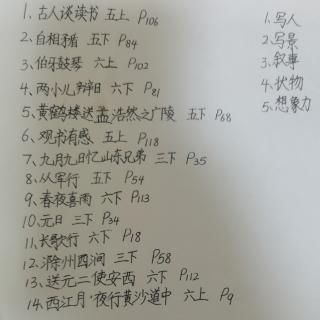 1、古人谈读书 五上 P106
2、自相矛盾 五下 P84
3、伯牙鼓琴 六上 P102
4、两小儿辩日 六下 P81
5、黄鹤楼送孟浩然之广陵 五下 P68
6、观书有感 五上 P118
7、九月九日忆山东兄弟 三下 P35
8、从军行 五下 P54
9、春夜喜雨 六下 P113
10、元日 三下 P34
11、长歌行 六下 P18
12、滁州西涧 三下 P58
13、送元二使安西 六下 P112
14、西江月·夜行黄沙道中 六上 P9
1、写人
2、写景
3、叙事
4、状物
5、想象力